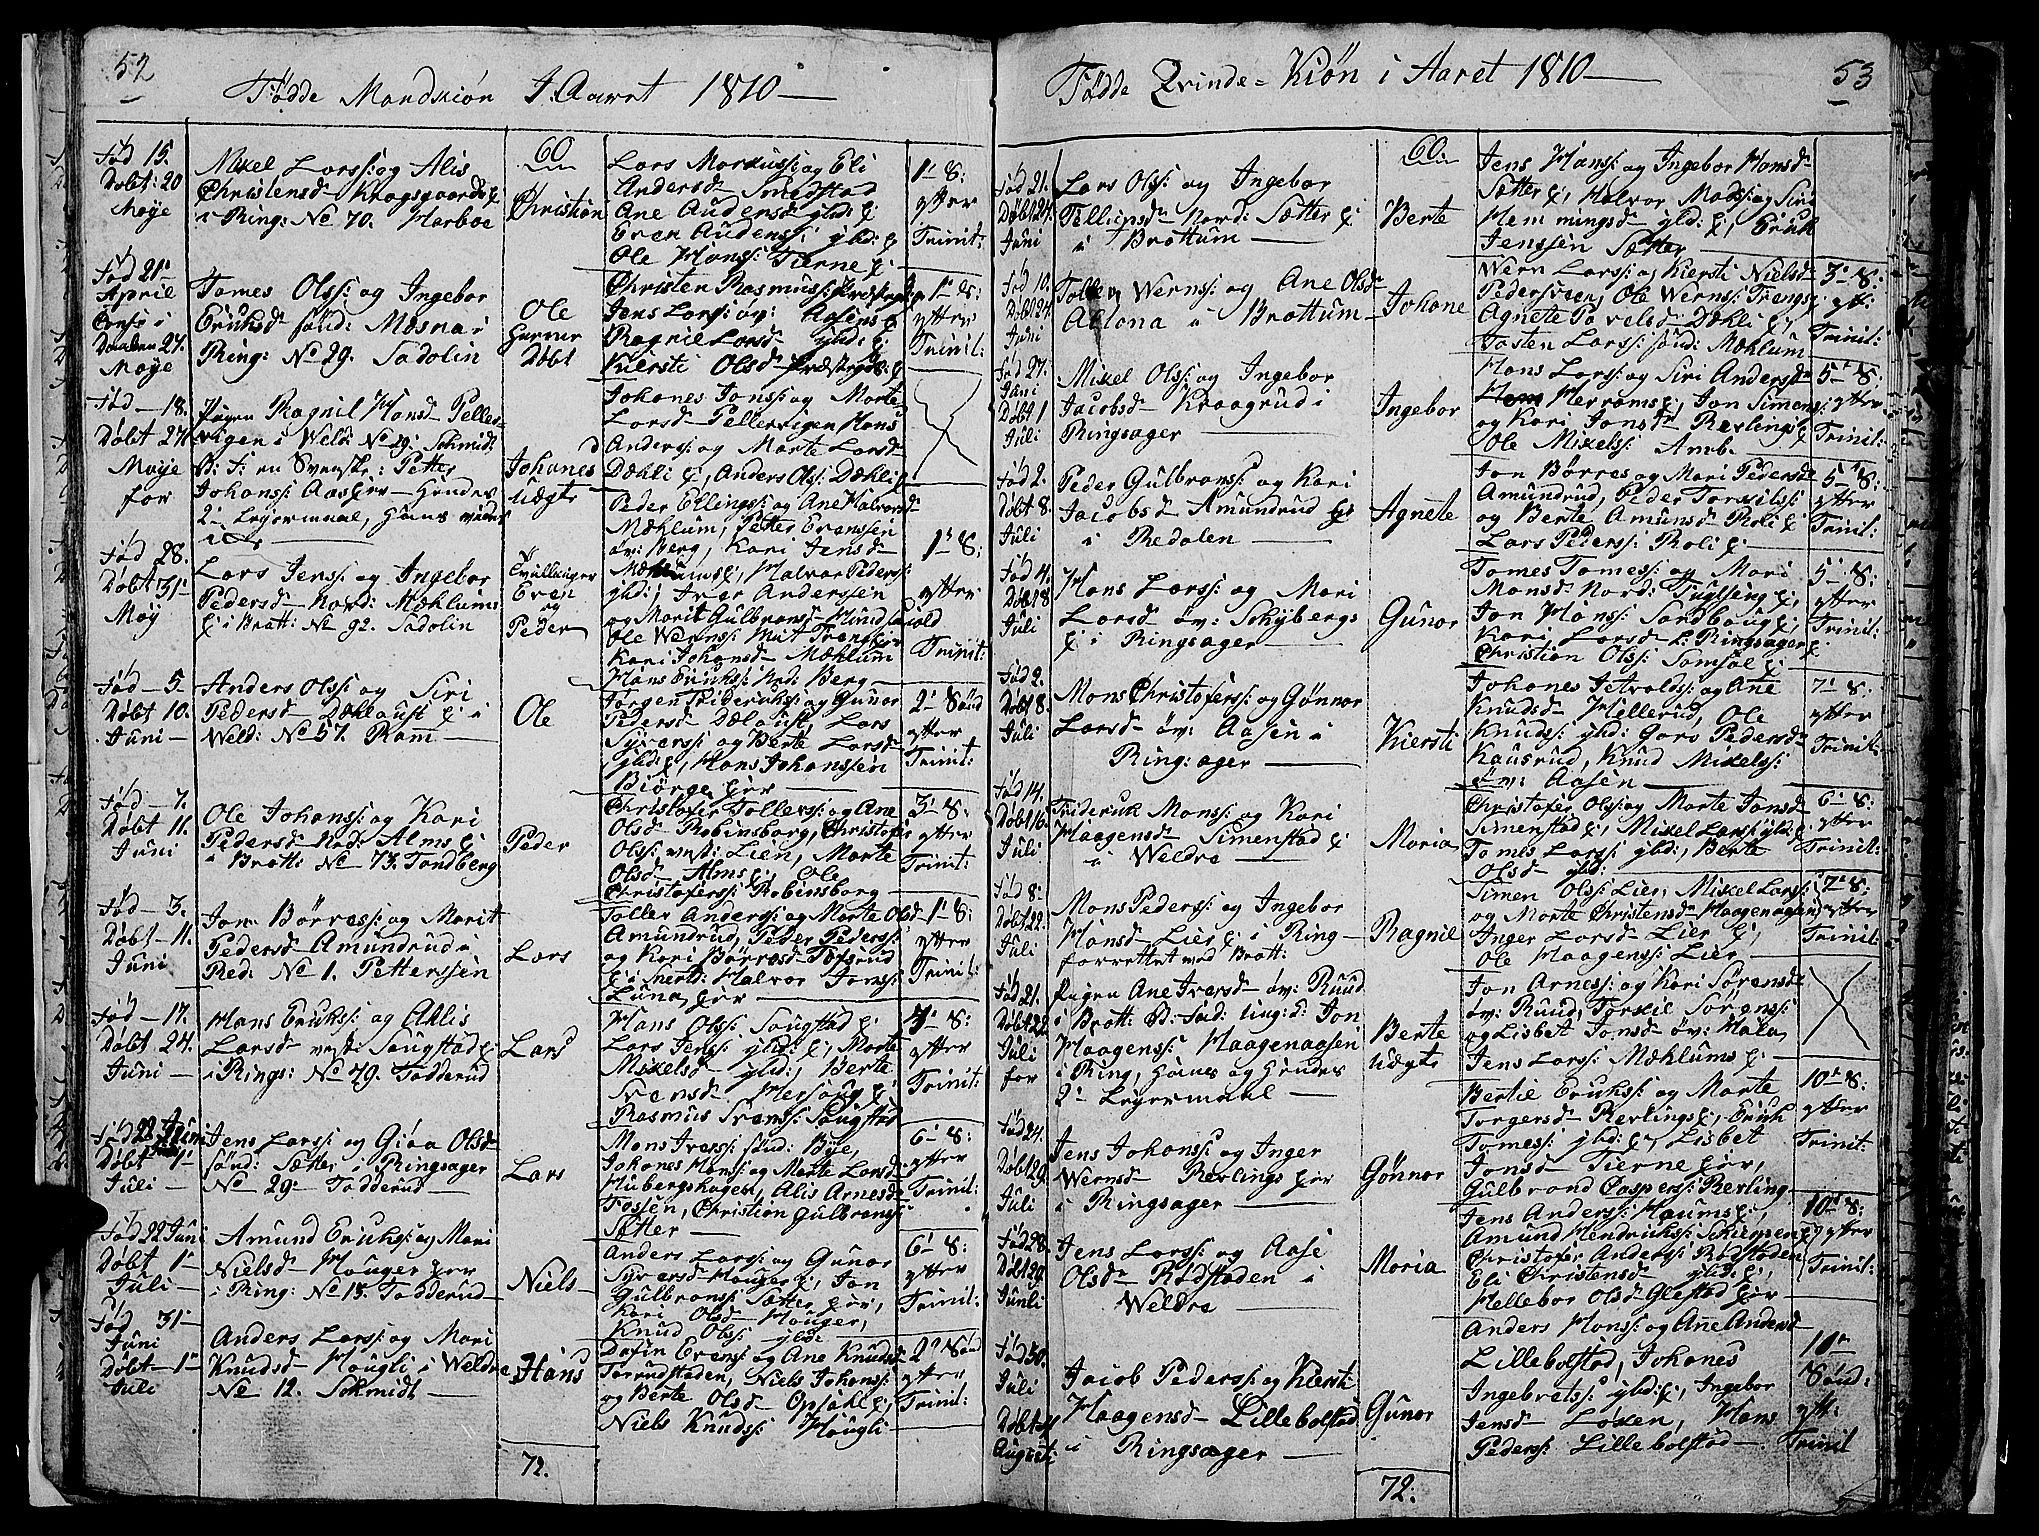 52
Fødde Mandkiøn I Aaret 1810
60
Fød 15.
Døbt: 20
Maye
Mikel Larss: og Alis
Christensd Kragsgaards Ej
i Ring: No 70. Harboe
Christian
Lars Markuss: og Eli
Andersd Smedstad
Ane Audensd yld: Ej
Even Audenss: yld: Ej
Ole Hanss: Tierne Ej
1 S:
efter
Trinit:
Fød 21
April
Døbt 27.
Maye
Tomes Olss: og Ingebor
Eriksd sønd: Mesna i
Ring: No 29. Sadolin
Ole
Døbt
Christen Rasmuss:
Jens Larss: øv: Aasens Ej
Ragnil Larsd yld: Ej
Kiersti Olsd
1 S:
efter
Trinit:
Fød 18.
Døbt 27.
Maye
for
Pigen Ragnil Hansd Peller-
vigen i Weld: No 29: Schmidt
B: F: en Svensk: Petter
Johanss: Aas Ejer Hendes
2 Leyermaal, Hans vides
Johanes
Uægte
Johanes Jonss: og Marte
Larsd Pellervigen Hans
Anderss: og Marte Larsd
Dæhli Ej, Anders Olss: Dæhli Ej
Fød 28.
Døbt 31
May
Lars Jenss: og Ingebor
Pedersd Nord: Mæhlums
Ej i Brøtt: No 92. Sadolin
Tvillinger
Even
og
Peder
Peder Ellingss: og Ane Halvorsd
Mæhlum, Petter Evenssen
øv: Berg, Kari Jensd
Mæhlums Ej, Halvor Pederss:
yld:, Iver Anderssen
og Marit Gulbransd
Ole Wernss:
Kari Johansd Mæhlum
Hans Erikss: Berg
1 S:
efter
Trinit:
Fød 5
Døbt 10.
Juni
Anders Olss: og Siri
Pedersd Dælaust Ej i
Weld: No 51. Ram
Ole
Jørgen Friderikss: og Gunor
Pedersd Dælaust, Lars
Syverss: og Berte Larsd
yld: Ej, Hans Johanssen
Biørge Ejer
2 Sønd
efter
Trinit:
Fød 7.
Døbt 11.
Juni
Ole Johanss: og Kari
Pedersd Ned: Alms Ej
i Brøtt: No 73. Tondberg
Peder
Christofer Tollerss: og Ane
Olsd Robinsborg, Christofer
Olss: vest: Lien, Marte
Olsd Alms Ej, Ole
Christoferss: Robinsborg
3 S:
efter
Trinit:
Fød 3.
Døbt 11.
Juni
Jon Børress: og Marit
Pedersd Amundrud i
Red: No 1. Petterssen
Lars
Toller Anderss: og Marte Olsd
Amundrud, Peder Pederss:
og Kari Børresd Tofsrud
Ej i Snert: Halvor Jonss:
Luna Ejer
1 S:
efter
Trinit:
Fød 17.
Døbt 24.
Juni
Hans Erikss: og Ahlis
Larsd vest: Saugstad Ej
i Rings: No 79. Todderud
Lars
Hans Olss: Saugstad Ej
Lars Jenss: yld: Ej, Marte
Mikelsd yld:, Berte
Svensd Mersaug Ej
Rasmus Svenss: Saugstad
1 S:
efter
Trinit:
Fød 22 Juni
Døbt 1
Juli
Jens Larss: og Gióa Olsd
sønd: Sætter i Ringsager
No 29 Todderud
Lars
Mons Iverss: sønd: Bye,
Johanes Hanss: og Marte Larsd
Hubergshagen, Alis Arnesd
Fossen, Christian Gulbrans:
Sætter
6 S:
efter
Trinit:
Fød 22 Juni
Døbt 1
Juli
Amund Erikss: og Mari
Nielsd Hauger Ejer
i Ring: No 15. Todderud
Niels
Anders Larss: og Gunor
Syversd Hauger Ej, Jon
Gulbranss: Sætter Ejer,
Kari Olsd Hauger,
Knud Olss: yld:
6 S:
efter
Trinit:
Fød 31
Juni
Døbt 1
Juli
Anders Larss: og Mari
Knudsd Haugli i Weldre
No 12. Schmidt
Hans
Dafin Evens: og Ane Knudsd
Torrudstaden, Niels Johans:
og Berte Olsd Opsahl Ej,
Niels Knudss: Haugli
2 Sønd
efter
Trinit:
72.
53
Fødde Qvinde-Kiøn i Aaret 1810
60.
Fød 21.
Døbt 24.
Juni
Lars Olss: og Ingebor
Tolliensd Nord: Sætter Ej
i Brøttum
Berte
Jens Hanss: og Ingebor Hansd
Sætter Ej, Halvor Madss: og Siri
Hemmingsd yld: Ej, Erik
Jenssen Sætter
Fød 10.
Døbt 24.
Juni
Tolle Wernss: og Ane Olsd
i Brøttum
Johane
Wern Larss: og Kiersti Nielsd
Pedersveen, Ole Wernss:
Agnete Povelsd Dæhli Ej,
Josten Larss: sønd: Mæhlum
3 S:
eft:
Trinit:
Fød 27.
Juni
Døbt 1
Juli
Mikel Olss: og Ingebor
Jacobsd Kraagrud i
Ringsager
Ingebor
Hans Larss: og Siri Andersd
Herrams Ej, Jon Simenss:
og Kari Jonsd Rerlings Ej
Ole Mikelss: Amb.
5 S:
efter
Trinit:
Fød 2.
Døbt 8.
Juli
Peder Gulbrans: og Kari
Jacobsd Amundrud
i Redalen
Agnete
Jon Børres: og Mari Pedersd
Amundrud, Peder Torkilss:
og Berte Amunsd Roli Ej
Lars Pederss: Roli Ej
5 S:
efter
Trinit:
Fød 4.
Døbt 8
Juli
Hans Larss: og Mari
Larsd øv: Schybergs
Ej i Ringsager
Gunor
Tomes Tomess: og Mari
Hansd Nord: Fuglseng Ej,
Jon Hanss: Sandbaug Ej,
Kari Larsd L: Ringsager Ej
Christian Olss: Samsøl Ej
5 S:
efter
Trinit:
Fød 2.
Døbt 8.
Juli
Mons Christoferss: og Gønnor
Larsd øv: Aasen i
Ring:ager
Kiersti
Johanes Jetvolds: og Ane
Knudsd Hellerud, Ole
Knudss: yld: Goro Pedersd
Kausrud, Knud Mikelss:
øv: Aasen
7 S:
efter
Trinit:
Fød 14.
Døbt 16.
Juli
Friderik Monss: og Kari
Haagensd Simenstad Ej
i Weldre
Maria
Christofer Ols: og Marte Jonsd
Simenstad Ej, Mikel Larss: yld: Ej
Tomes Larss: yld:, Berte
Olsd yld:
6 S:
efter
Trinit:
Fød 8.
Døbt 22.
Juli
Mons Pederss: og Ingebor
Hansd Lier Ej i Ring
forrettet ved Brøtt:
Ragnil
Simen Olss: Lier, Mikel Larss:
og Marte Christensd Haagenagen
Inger Larsd Lier Ej,
Ole Haagenss: Lier
7 S:
efter
Trinit:
Fød 21.
Døbt 22
Juli
for
Pigen Ane Iversd øv: Ruud
i Brøtt: B: Fad: Ung: d: Jon
Haagenss: Haagenaasen
i Ring, Hanes og Hendes
2 Leyermaal
Berte
Uægte
Jon Arness: og Kari Sørensd
øv: Ruud, Torkil Sørenss:
og Lisbet Jonsd øv: Hala
Jens Larss: Mæhlums Ej
Fød 24.
Døbt 29.
Juli
Jens Johanss: og Inger
Wernsd Rerlings Ejer
i Ringsager
Gønnor
Bertil Erikss: og Marte
Torgersd Rerlings Ej, Erik
Tomess: yld: Ej, Lisbet
Jonsd Tierne Ejer,
Gulbrand Caspers: Rerling
10 S:
efter
Trinit:
Fød 28.
Døbt 29.
Junli
Jens Larss: og Aase
Olsd Rødstaden i
Weldre
Maria
Jens Anderss: Haums Ej,
Amund Hendrikss:
Christofer Anderss: Rødstaden
Eli Christensd yld: Ej,
Hellebor Olsd Glestad Ejer
10 S:
efter
Trinit:
Fød 30.
Juli
Døbt
August:
Jacob Pederss: og Kiersti
Haagensd Lillebolstad
i Ringsager
Gunor
Anders Hanss: og Ane Andersd
Lillebolstad, Johanes
Ingebretss: yld: Ej, Ingebor
Jensd Løken, Hans
Pederss: Lillebolstad
10
Sønd:
eft:
Trinit
72.